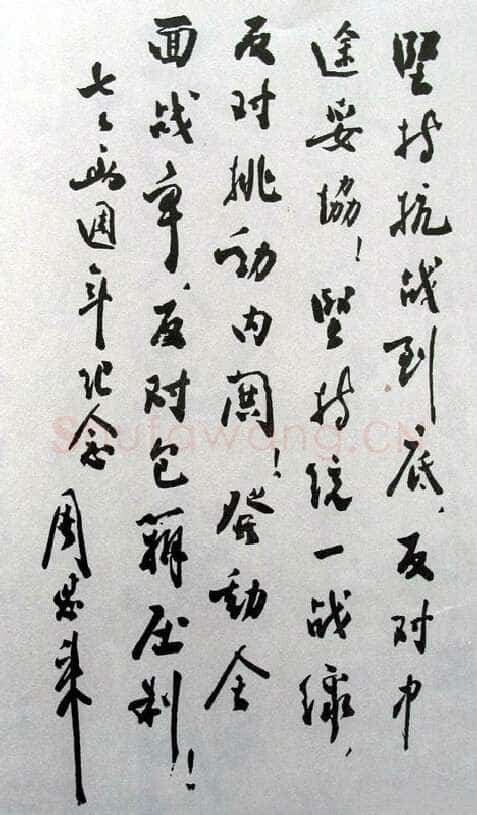 坚持抗战到底，反对中
途妥協！坚持统一战線，
反对挑动内鬨！發动全
面战争，反对包辦压制！
七七两週年纪念
周恩来
Shufawang.CN